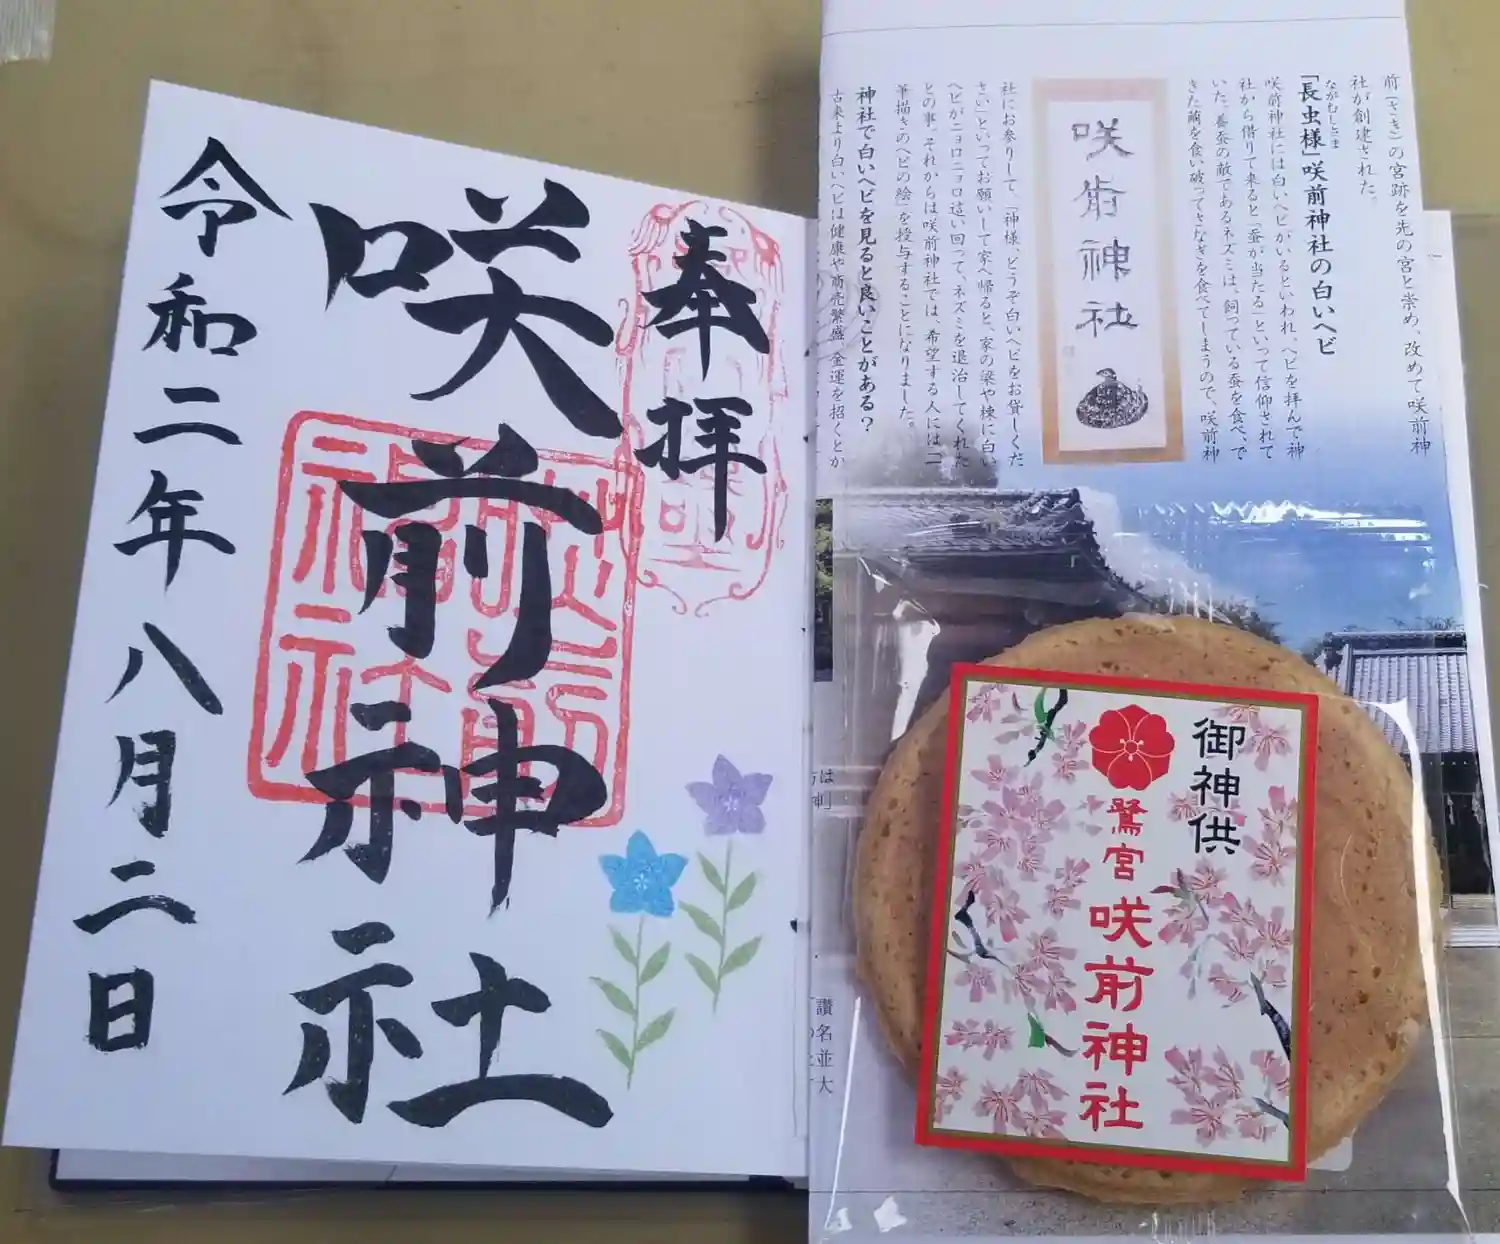 奉拝
咲前神社
令和二年八月二日
咲前
神社
前(さき)の宮跡を先の宮と崇め、改めて咲前神
社が創建された。
ながむしさま
「長虫様」咲前神社の白いヘビ
咲前神社には白いヘビがいるといわれ、ヘビを拝んで神
社から借りて来ると「蚕が当たる」といって信仰されて
いた。養蚕の敵であるネズミは、飼っている蚕を食べ、で
きた繭を食い破ってさなぎを食べてしまうので、咲前神
咲前神社
社にお参りして、「神様、どうぞ白いヘビをお貸しくだ
さい」といってお願いして家へ帰ると、家の梁や棟に白い
ヘビがニョロニョロ這い回って、ネズミを退治してくれた
との事。それからは咲前神社では、希望する人には「一
筆描きのヘビの絵」を授与することになりました。
神社で白いヘビを見ると良いことがある?
古来より白いヘビは健康や商売繁盛、金運を招くとか
讃名並大
御神供
鷺宮
咲前神社